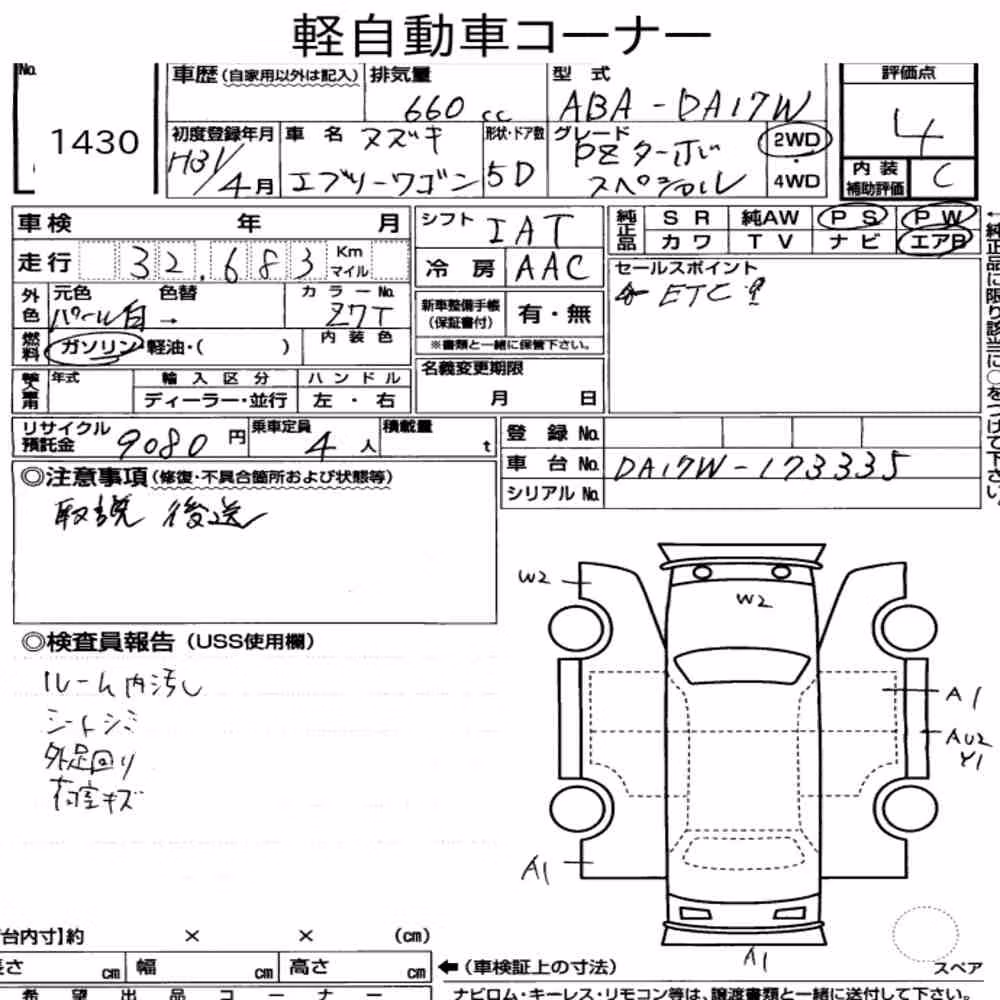 軽自動車コーナー
No. 1430
車歴(自家用以外は記入) 排気量 660 cc 型式 ABA-DA17W 評価点 4
初度登録年月 H31/4月 車名 スズキ エブリーワゴン 形状・ドア数 5D グレード PZターボ スペシャル 2WD・4WD 内装補助評価 C
車検 年 月
走行 32,683 Km マイル
外色 元色 パール白 → 色替 カラーNo. Z7T
燃料 ガソリン・軽油・( ) 内装色
年式 輸入区分 ディーラー・並行 ハンドル 左・右
シフト IAT
冷房 AAC
新車整備手帳(保証書付) 有・無
※書類と一緒に保管下さい。
名義変更期限 月 日
純正品 SR 純AW PS PW
カワ TV ナビ エアB
セールスポイント
ETC
←純正品に限り該当に○をつけて下さい。
リサイクル預託金 9080円 乗車定員 4人 積載量 t
登録No.
車台No. DA17W-173335
シリアルNo.
◎注意事項(修復・不具合箇所および状態等)
取説 後送
◎検査員報告(USS使用欄)
ルーム内汚し
シートシミ
外足回り
荷室キズ
W2
W2
A1
AU2
Y1
A1
A1
スペア
台内寸]約 × × (cm)
長さ cm 幅 cm 高さ cm
←(車検証上の寸法)
希望出品コーナー
ナビロム・キーレス・リモコン等は、譲渡書類と一緒に送付して下さい。